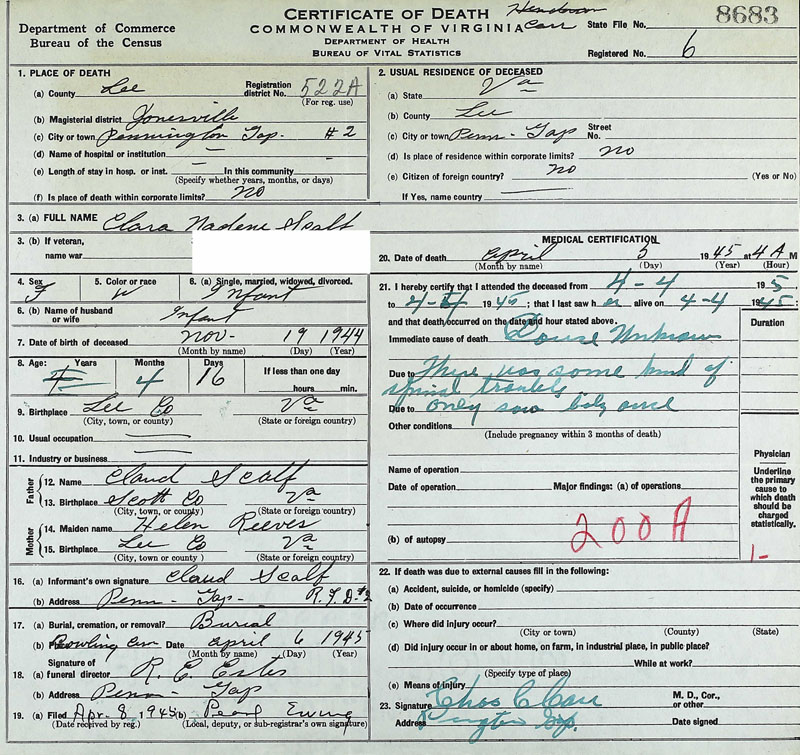 Department of Commerce
Bureau of the Census
CERTIFICATE OF DEATH
COMMONWEALTH OF VIRGINIA
DEPARTMENT OF HEALTH
BUREAU OF VITAL STATISTICS
Carr
State File No.
8683
Registered No. 6
1. PLACE OF DEATH
(a) County Lee Registration district No. 522A
(For reg. use)
(b) Magisterial district Jonesville
(c) City or town Pennington Gap. #2
(d) Name of hospital or institution —
(e) Length of stay in hosp. or inst. — In this community
(Specify whether years, months, or days)
(f) Is place of death within corporate limits? NO
2. USUAL RESIDENCE OF DECEASED
(a) State Va
(b) County Lee
(c) City or town Penn- Gap Street No.
(d) Is place of residence within corporate limits? NO
(e) Citizen of foreign country? NO (Yes or No)
If Yes, name country
3. (a) FULL NAME Clara Nadene Scalf
3. (b) If veteran,
name war
4. Sex F
5. Color or race W
6. (a) Single, married, widowed, divorced. Infant
6. (b) Name of husband or wife Infant
7. Date of birth of deceased Nov- 19 1944
(Month by name) (Day) (Year)
8. Age: Years Months 4 Days 16 If less than one day
hours min.
9. Birthplace Lee Co Va
(City, town, or county) (State or foreign country)
10. Usual occupation
11. Industry or business
Father
12. Name Claud Scalf
13. Birthplace Scott Co Va
(City, town, or county) (State or foreign country)
Mother
14. Maiden name Helen Reeves
15. Birthplace Lee Co Va
(City, town, or county ) (State or foreign country)
16. (a) Informant's own signature Claud Scalf
(b) Address Penn- Gap- R.F.D#2
17. (a) Burial, cremation, or removal? Burial
(b) Date April 6 1945
(Month by name) (Day) (Year)
Signature of
18. (a) funeral director R. E. Estes
(b) Address Penn- Gap
19. (a) Filed Apr. 8, 1945 (b) Pearl Ewing
(Date received by reg.) (Local, deputy, or sub-registrar's own signature)
MEDICAL CERTIFICATION
20. Date of death April 5 1945 at 4A M
(Month by name) (Day) (Year) (Hour)
21. I hereby certify that I attended the deceased from 4-4 195
to 4-5 1945 ; that I last saw her alive on 4-4 1945 ;
and that death occurred on the date and hour stated above.
Duration
Immediate cause of death Couse Unknow
Due to There was some kind of
spinal trouble.
Due to only saw baby once
Other conditions
(Include pregnancy within 3 months of death)
Name of operation
Date of operation Major findings: (a) of operations
(b) of autopsy
200A
Physician
Underline the primary cause to which death should be charged statistically.
1-
22. If death was due to external causes fill in the following:
(a) Accident, suicide, or homicide (specify)
(b) Date of occurrence
(c) Where did injury occur?
(City or town) (County) (State)
(d) Did injury occur in or about home, on farm, in industrial place, in public place?
While at work?
(Specify type of place)
(e) Means of injury
23. Signature Chas C Carr M. D., Cor., or other
Address Date signed